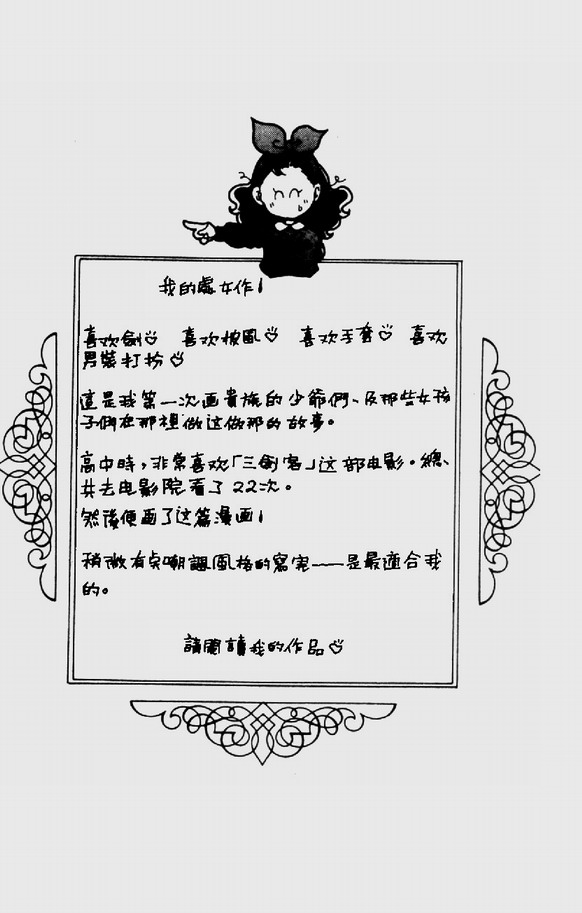 我的處女作!
喜欢劍♡ 喜欢披風♡ 喜欢手套♡ 喜欢
男裝打扮♡
這是我第一次画貴族的少爺們、及那些女孩
子們在那裡做这做那的故事。
高中時,非常喜欢「三劍客」这部电影。總、
共去电影院看了22次。
然後便画了这篇漫画!
稍微有点嘲諷風格的寫实——是最適合我
的。
請閱讀我的作品♡